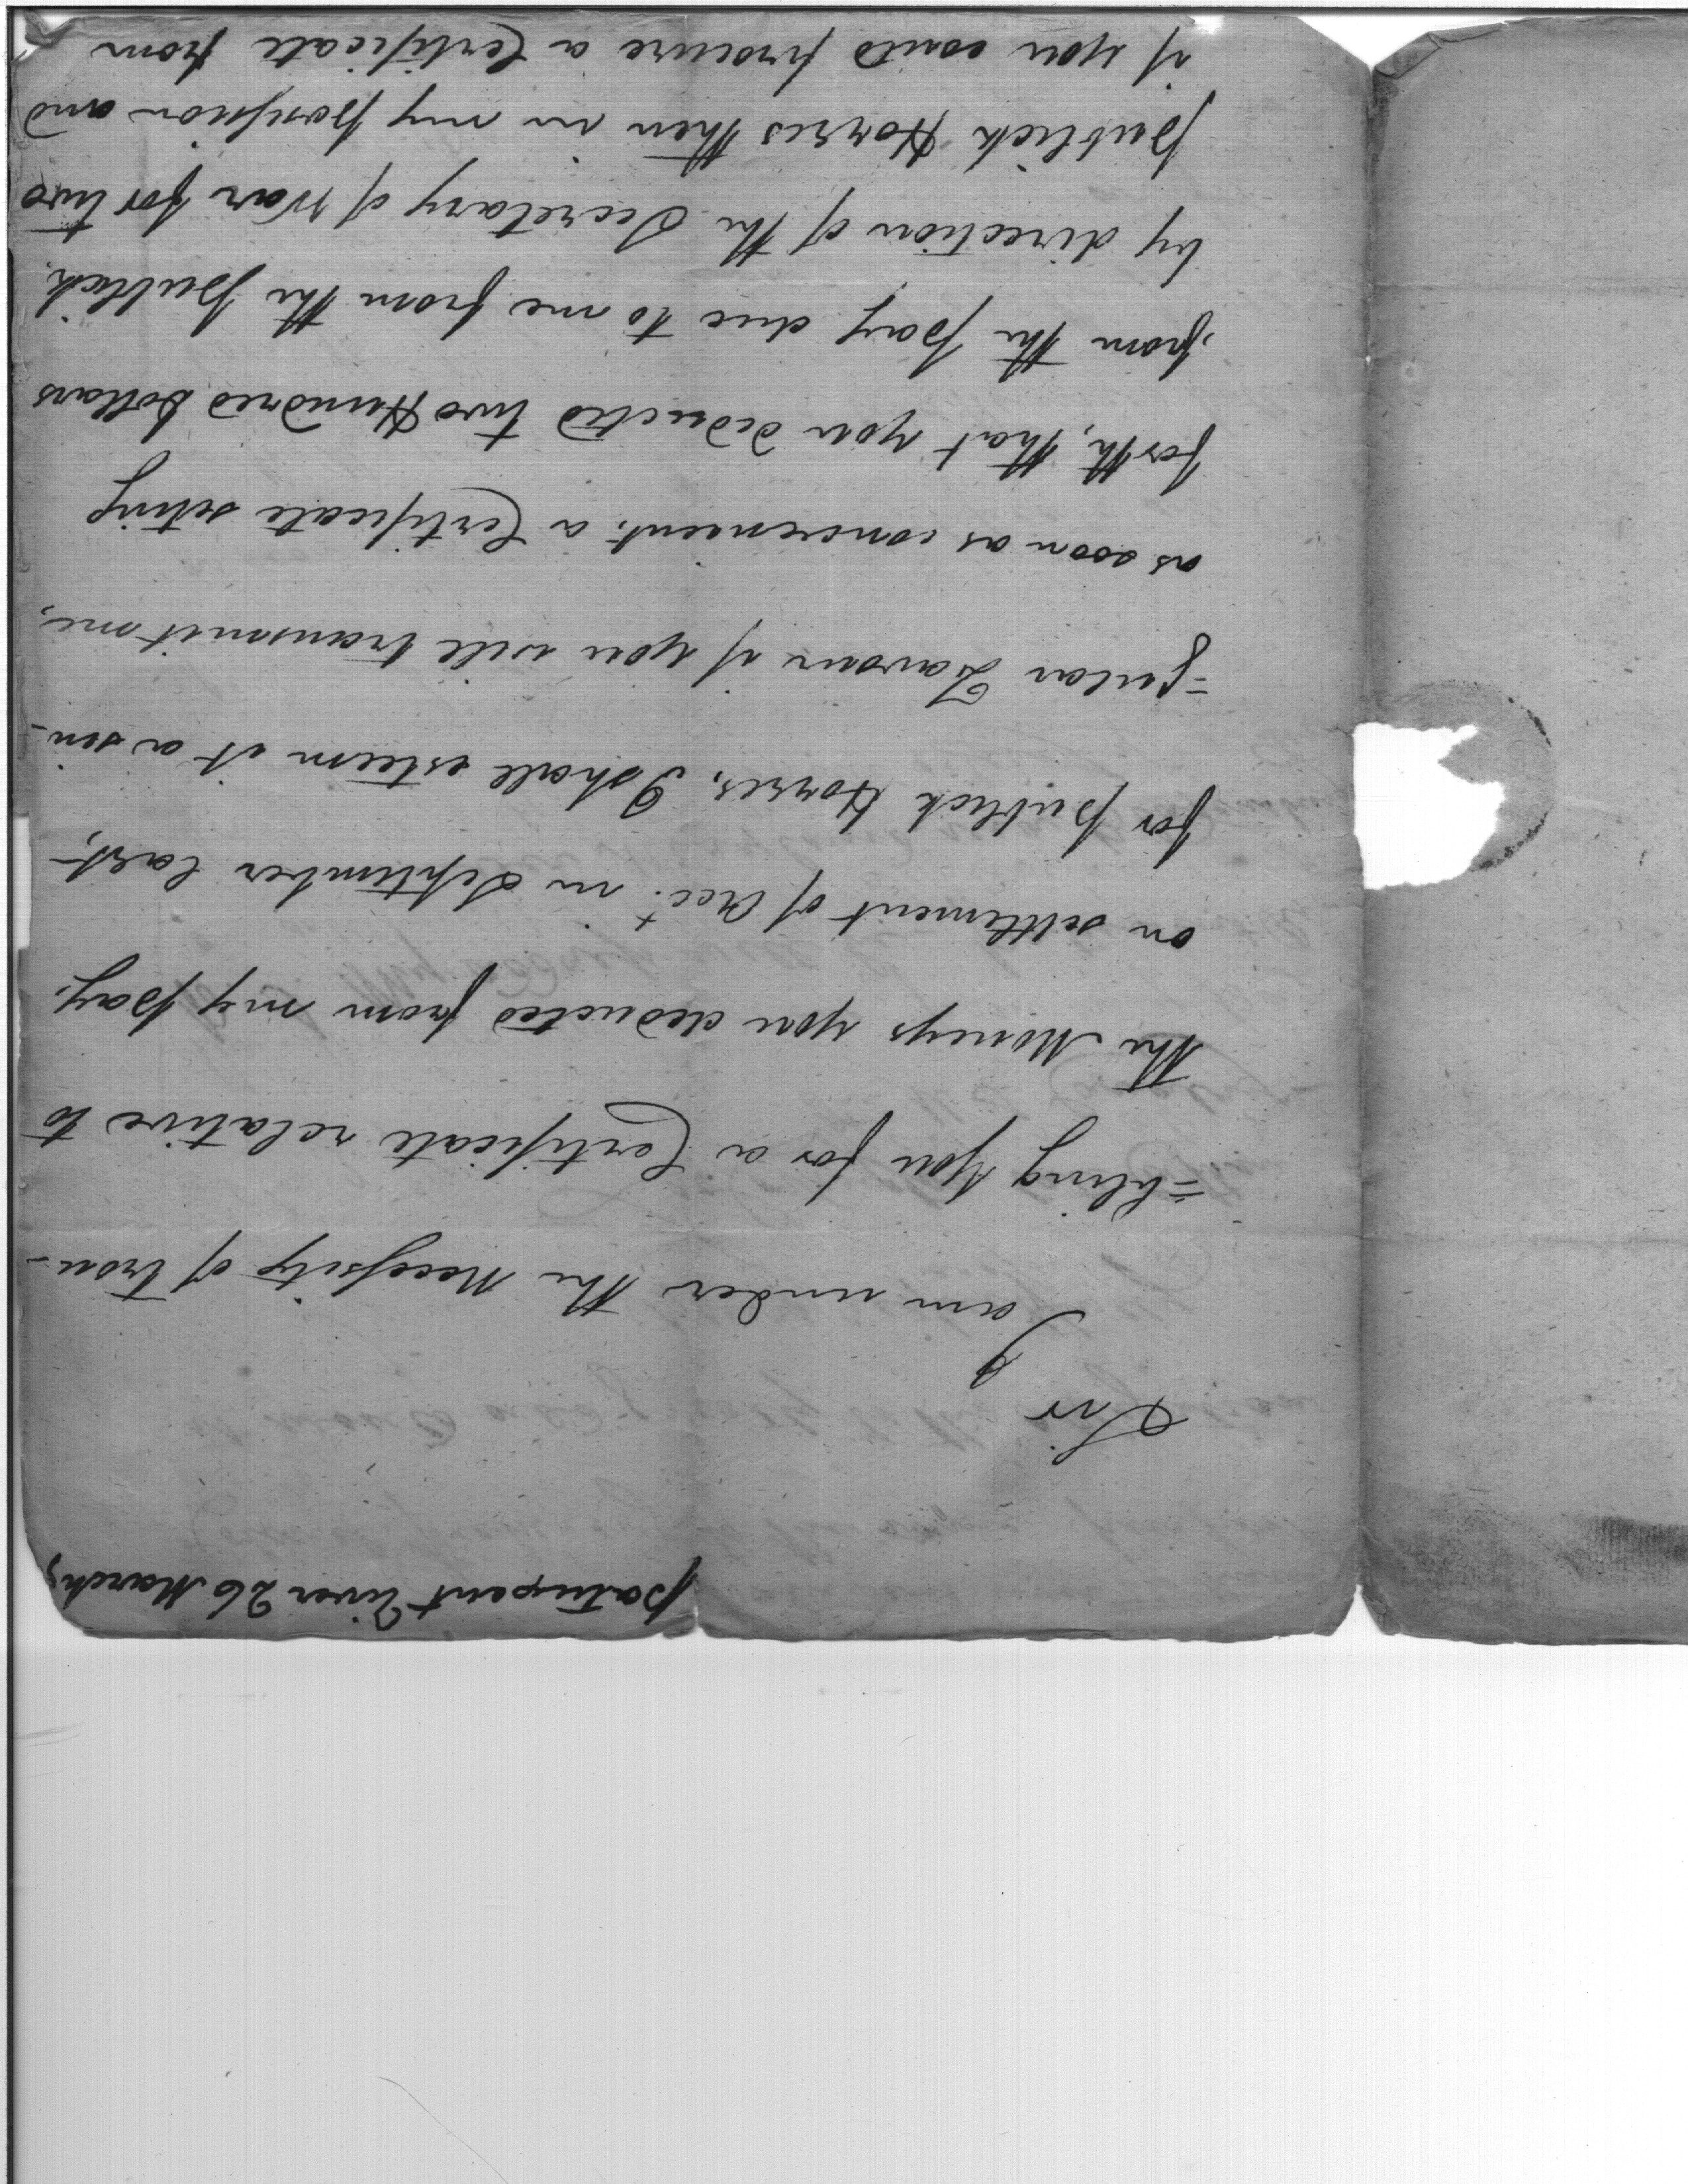 patuxent River 26 March,
Sir
I am under the Necessity of trou-
=bling you for a Certificate relative to
the Moneys you deducted from my pay.
on settlement of Acct. in September last,
for publick Horses, I shall esteem it a sin-
=gular Favour if you will transmit me,
as soon as convenient, a Certificate seting
forth, that you deducted two Hundred dollars
from the pay due to me from the publick
by direction of the Secretary of War for two
publick Horses then in my possession and
if you could procure a Certificate from